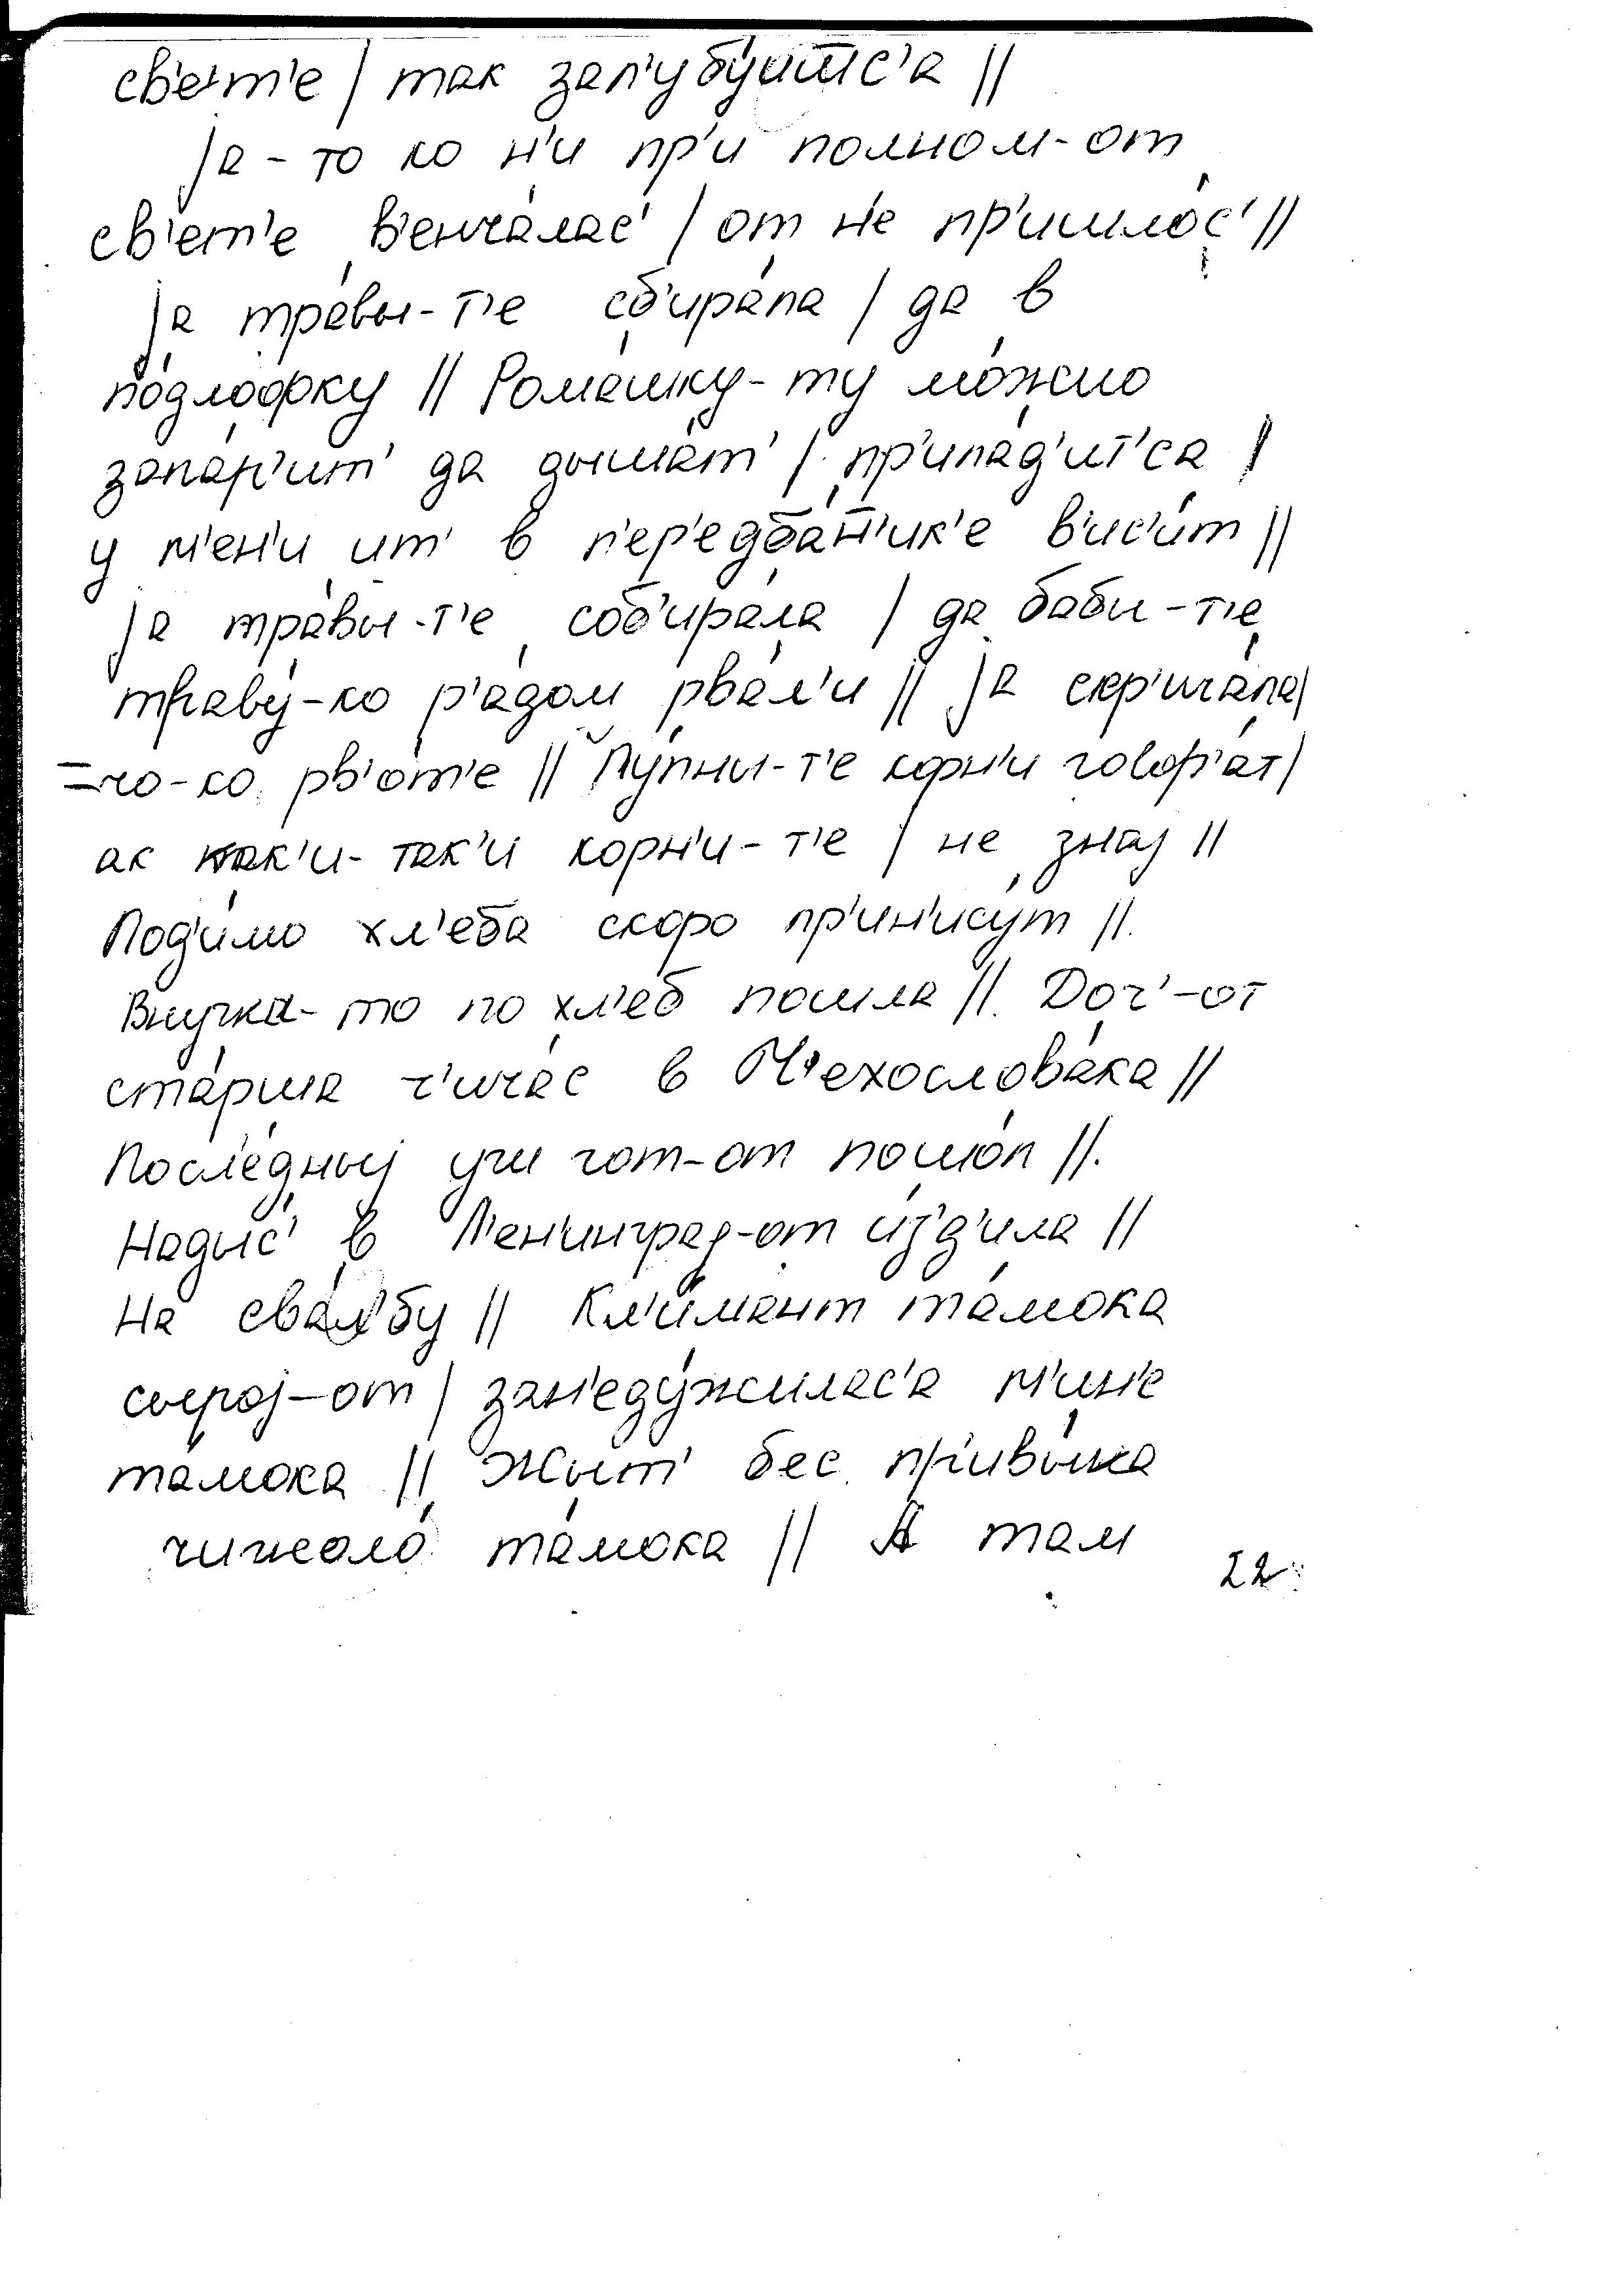 св'ет'е / так зал'убу́итс'а //
ја-то ко н'и пр'и полном-от
св'ет'е в'енча́лас' / от н'е пр'ишло́с' //
ја тра́вы-т'е сб'ира́ла / да в
по́длофку // Рома́шку-ту мо́жно
запа́р'ит' да дыша́т' / пр'игад'и́т'са /
у м'ен'и ит' в п'ер'едба́н'ик'е в'ис'и́т //
ја тра́вы-т'е соб'ира́ла / да баби-т'е
траву́-ко р'а́дом рва́л'и // ја скр'ича́ла /
=чо-ко рв'о́т'е // Пу́пны-т'е корн'и говор'а́т /
ак так'и-так'и корн'и-т'е / не знај //
Под'имо хл'е́ба скоро пр'ин'ису́т //
Внучка-то по хл'еб пошла // Доч'-от
ста́рша ч'ича́с в Ч'ехослова́ка //
После́дныј уш гот-от пошо́л //
Нады́с' в Л'ен'инград-от и́з'д'ила //
На сва́л'бу // Кл'и́мант та́мока
сырој-от / зан'еду́жилас'а м'ин'е
та́мока // Жыт' бес пр'ивы́ка
чижоло́ та́мока // А там
22